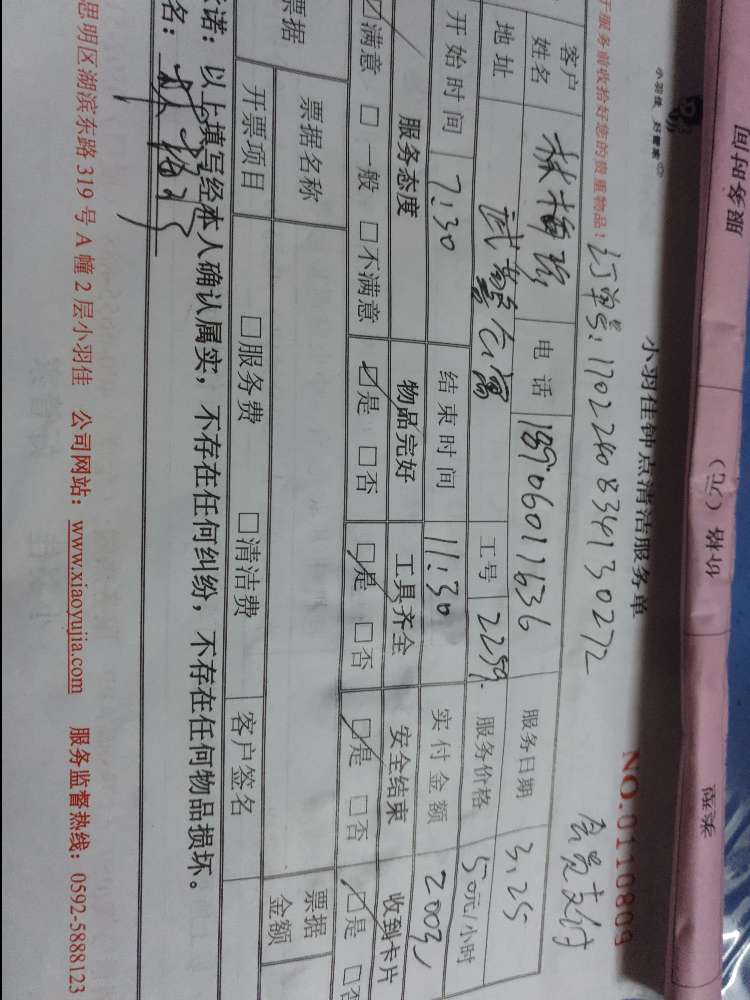 服务时间 价格（元） 类型
小羽佳 好管家
小羽佳钟点清洁服务单 NO.0110809
于服务前收拾好您的贵重物品！ 订单号：1702240834130272 会员支付
客户姓名 林梅珍 电话 18906011636 服务日期 3.25
地址 武警公寓 工号 2259 服务价格 50元/小时
开始时间 7:30 结束时间 11:30 实付金额 200元
服务态度 物品完好 工具齐全 安全结束 收到卡片
☑满意 □一般 □不满意 ☑是 □否 ☑是 □否 ☑是 □否 ☑是 □否
票据 票据名称 票据金额
开票项目 □服务费 □清洁费 客户签名
诺：以上填写经本人确认属实，不存在任何纠纷，不存在任何物品损坏。
名：林梅珍
思明区湖滨东路 319 号 A 幢 2 层小羽佳 公司网站：www.xiaoyujia.com 服务监督热线：0592-5888123